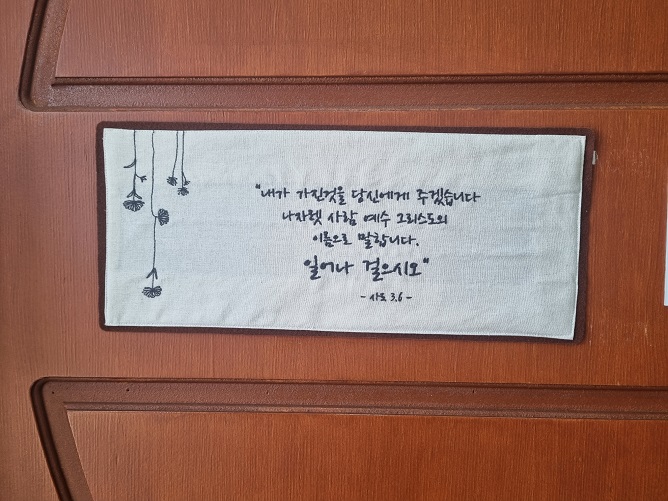 "내가 가진것을 당신에게 주겠습니다
나자렛 사람 예수 그리스도의
이름으로 말합니다.
일어나 걸으시오"
- 사도 3,6 -